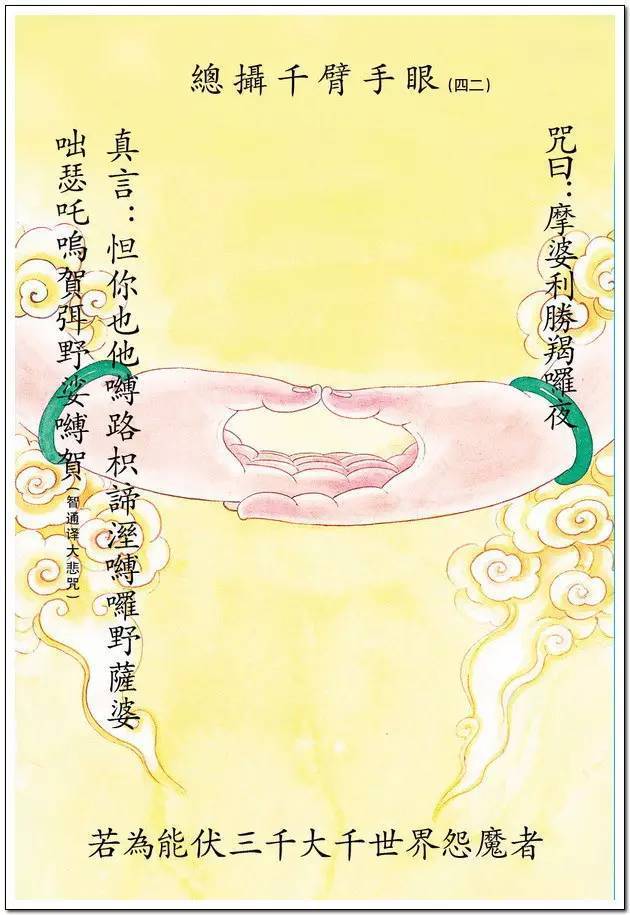 總攝千臂手眼(四二)
咒曰：摩婆利勝羯囉夜
真言：怛你也他嚩路枳諦溼嚩囉野薩婆
咄瑟吒嗚賀弭野娑嚩賀(智通译大悲咒)
若為能伏三千大千世界怨魔者